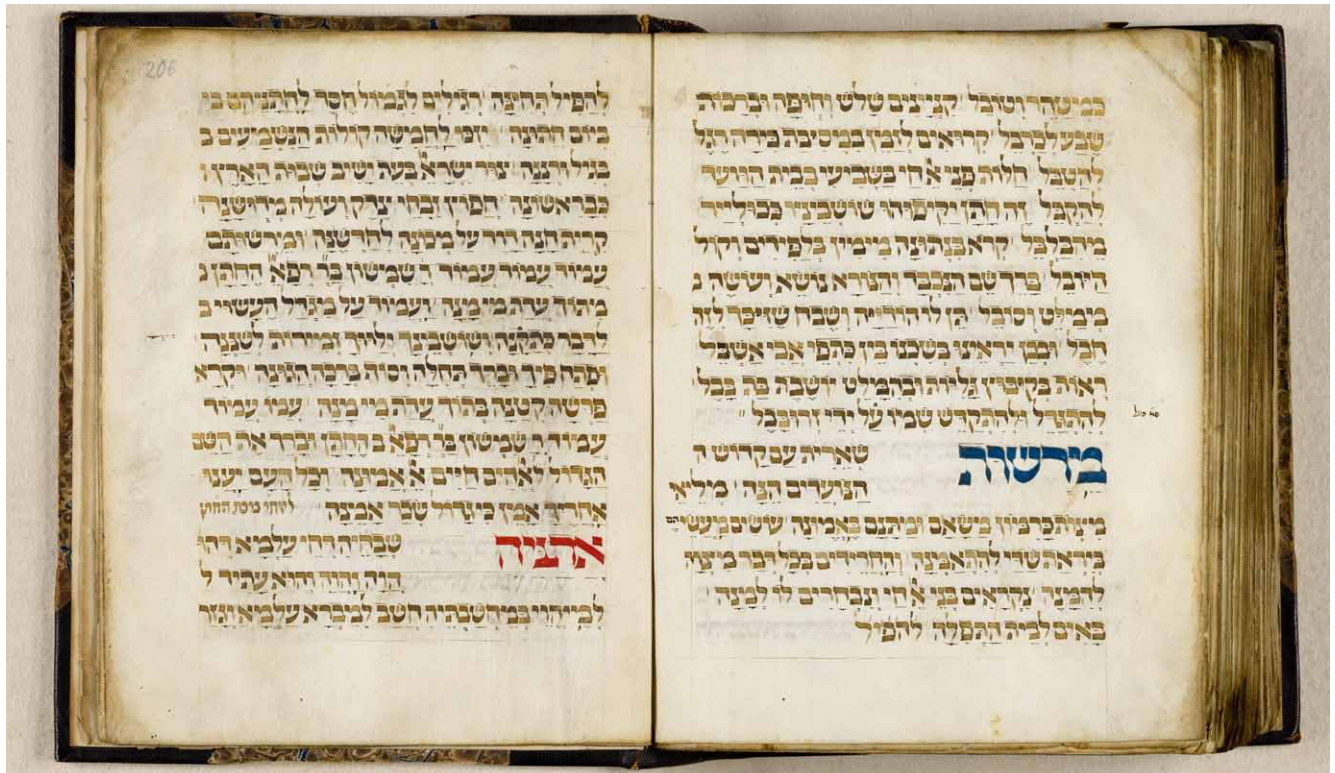 כמישהר וטובל קנינים שלש וחופה וברכות
שבע למובל קרואים לזמן במסיבת בירה הגל
להטבל חלות פני אחי בשביעי בבית הוועד
להקבל זה החתן יקימוהו שושביניו
מרבלבל קרא בנתינה מימין בלפידים וקול
היובל ברך שם הנכבד והנורא נושא ועושה
ממילט וסיבל הן ליהודייה ושבח שזיכר לזה
חבל ובכן יראינו בשכנו בין כתפי אבי אשבל
ראות בקיבוץ גליות ובהמלט יושבת בת בבל
להתגדל ולהתקדש שמו על ידי זרובבל
מרשות
שארית עם קדוש ה
הנועדים הנה מליאי
מיצות כרמון משאם ומתנם באמונה עושים מעשיהם
ביראת שדי להתאמנה והחרידים בכל דבר מיצות
להמנה נקראים בני אחי ונבחרים לו למנה
באים לבית התפלה להפיל
206
להפיל תחינה רגילים לגמול חסד לחתניהם בי
ביום חתונה יזכו לחמישה קולות הנשמעים ב
בגיל ורננה צור ישרא בעה ישיב שבות הארץ ו
כבראשונה חפוץ זבחי צדק ועולה מדושנה
קרית חנה דוד על מכונה לחדשנה ומירשותם
עמוד עמוד עמוד ר שמשון בר רפא החתן
מתוך עדת מי מנה ועמוד על מגדל העשוי ב
לדבר כתקנה ושושבינך ולוייך זמירות לשננה
ופתח פיך וברך תחלה וסוף ברכה הגונה וקרא
פרשה קטנה בתוך עדת מי מנה עמו עמוד
עמוד ר שמשון בר רפא החתן וברך את השם
הגדול לאהים חיים א אמונה וכל העם יענו
אחריך אמן כיגדול שכר אמינה
אדניה
שבחיה דחי עלמא דהוי
הויה והוה והוא עתיד ל
למיהוי במיחשבתיה חשב למברא עלמא וגזר